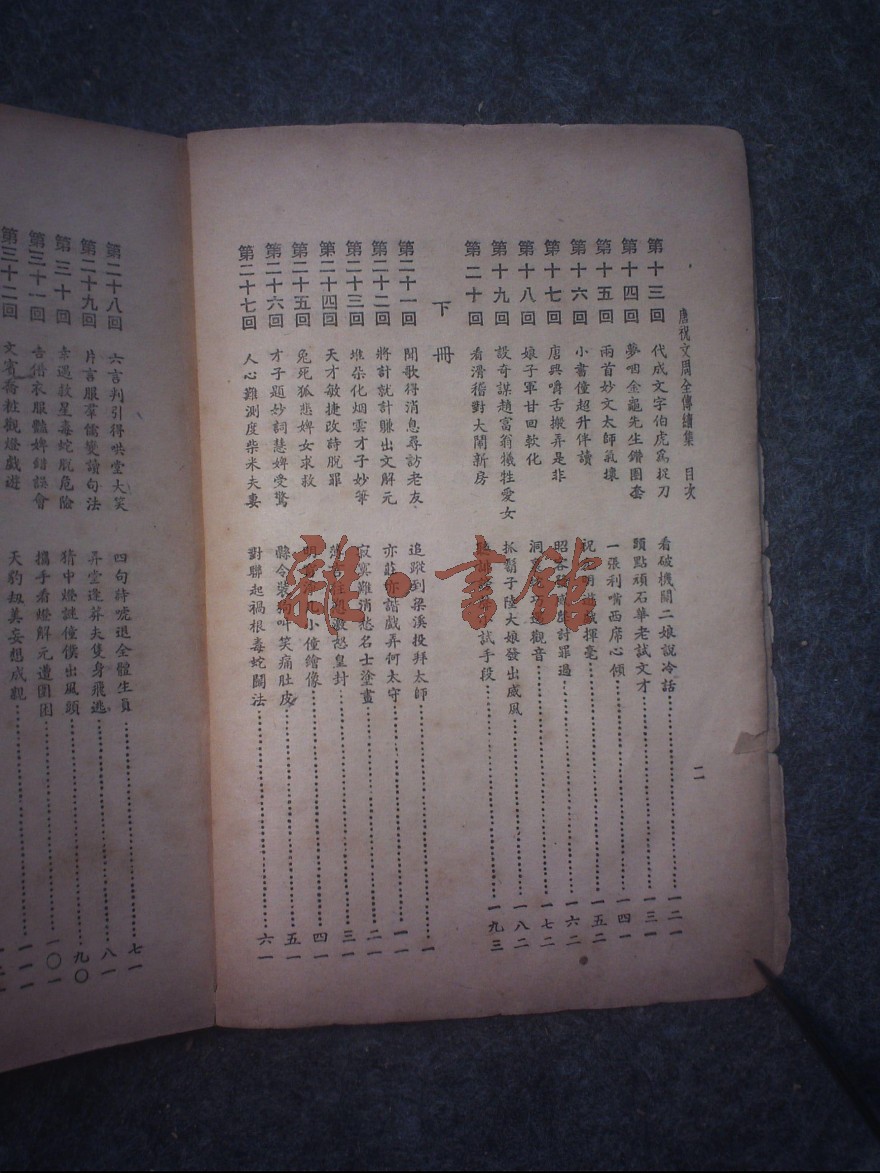 唐祝文周全傳續集 目次 二
第十三回 代成文字伯虎爲捉刀 看破機關二娘說冷話 一二一
第十四回 夢咽金龜先生鑽圈套 頭點頑石華老試文才 一三一
第十五回 兩首妙文太師氣壞 一張利嘴西席心傾 一四一
第十六回 小書僮超升伴讀 祝 明遊戲揮毫 一五二
第十七回 唐興嚼舌搬弄是非 昭容 聲討罪過 一六二
第十八回 娘子軍甘回軟化 洞 巧 觀音 一七二
第十九回 設奇謀趙富翁犧牲愛女 抓鬍子陸大娘發出威風 一八二
第二十回 看滑稽對大鬧新房 試手段 一九三
下冊
第二十一回 聞歌得消息尋訪老友 追蹤到梁溪投拜太師 一
第二十二回 將計就計賺出文解元 亦莊亦諧戲弄何太守 一一
第二十三回 堆朶化烟雲才子妙筆 寂寞難消愁名士塗畫 二一
第二十四回 天才敏捷改詩脫罪 激怒皇封 三一
第二十五回 兔死狐悲婢女求救 明 小僮繪像 四一
第二十六回 才子題妙詞慧婢受驚 縣令裝狗叫笑痛肚皮 五一
第二十七回 人心難測度柴米夫妻 對聯起禍根毒蛇鬭法 六一
第二十八回 六言判引得哄堂大笑 四句詩唬退全體生員 七一
第二十九回 片言服羣儒雙讀句法 弄堂逢莽夫隻身飛逃 八一
第三十回 幸遇救星毒蛇脫危險 猜中燈謎僮僕出風頭 九〇
第三十一回 借衣服豔婢錯誤會 攜手看燈解元遭圍困 一〇一
第三十二回 文賓喬粧觀燈戲遊 天豹刼美妄想成親 一一一